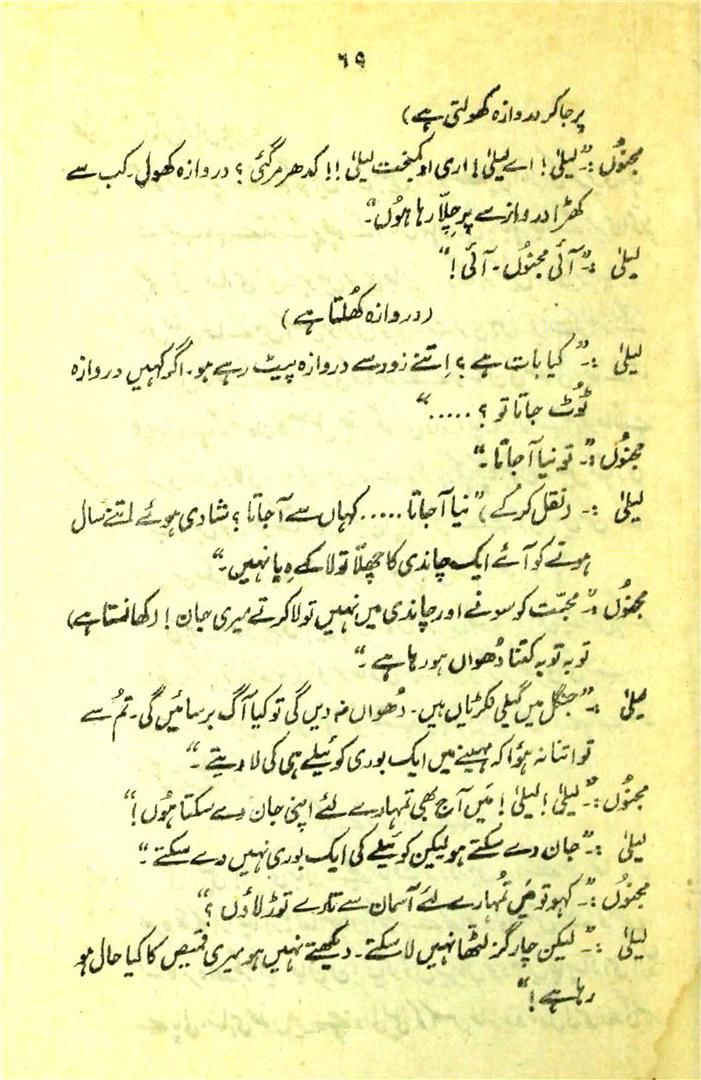 ۶۹
پر جا کر دروازہ کھولتی ہے)
مجنوُں :۔ ”لیلیٰ! اے لیلیٰ! اری او کمبخت لیلیٰ!! کدھر مر گئی ؟ دروازہ کھول۔ کب سے
کھڑا دروازے پر چِلّا رہا ہوُں“۔
لیلیٰ :۔ ”آئی مجنوُں۔ آئی!“
(دروازہ کھُلتا ہے)
لیلیٰ :۔ ”کیا بات ہے ؟ اِتنے زور سے دروازہ پیٹ رہے ہو۔ اگر کہیں دروازہ
ٹوُٹ جاتا تو ؟ .....“
مجنوُں :۔ ”تو نیا آ جاتا۔“
لیلیٰ :۔ (نقل کر کے) ”نیا آ جاتا ..... کہاں سے آ جاتا ؟ شادی ہوئے اتنے سال
ہونے کو آئے ایک چاندی کا چھلّا تو لا کے دیا نہیں۔“
مجنوُں :۔ ”محبّت کو سونے اور چاندی میں نہیں تولا کرتے میری جان! (کھانستا ہے)
توبہ توبہ کتنا دُھواں ہو رہا ہے۔“
لیلیٰ :۔ ”جنگل میں گیلی لکڑیاں ہیں۔ دُھواں نہ دیں گی تو کیا آگ برسائیں گی۔ تمُ سے
تو اتنا نہ ہوُا کہ مہینے میں ایک بوری کوئیلے ہی کی لا دیتے۔“
مجنوُں :۔ ”لیلیٰ! لیلیٰ! مَیں آج بھی تمہارے لئے اپنی جان دے سکتا ہوُں!“
لیلیٰ :۔ ”جان دے سکتے ہو لیکن کوئیلے کی ایک بوری نہیں دے سکتے۔“
مجنوُں :۔ ”کہو تو مَیں تُمہارے لئے آسمان سے تارے توڑ لاؤں ؟“
لیلیٰ :۔ ”لیکن چار گز لٹھا نہیں لا سکتے۔ دیکھتے نہیں ہو میری قمیص کا کیا حال ہو
رہا ہے!“